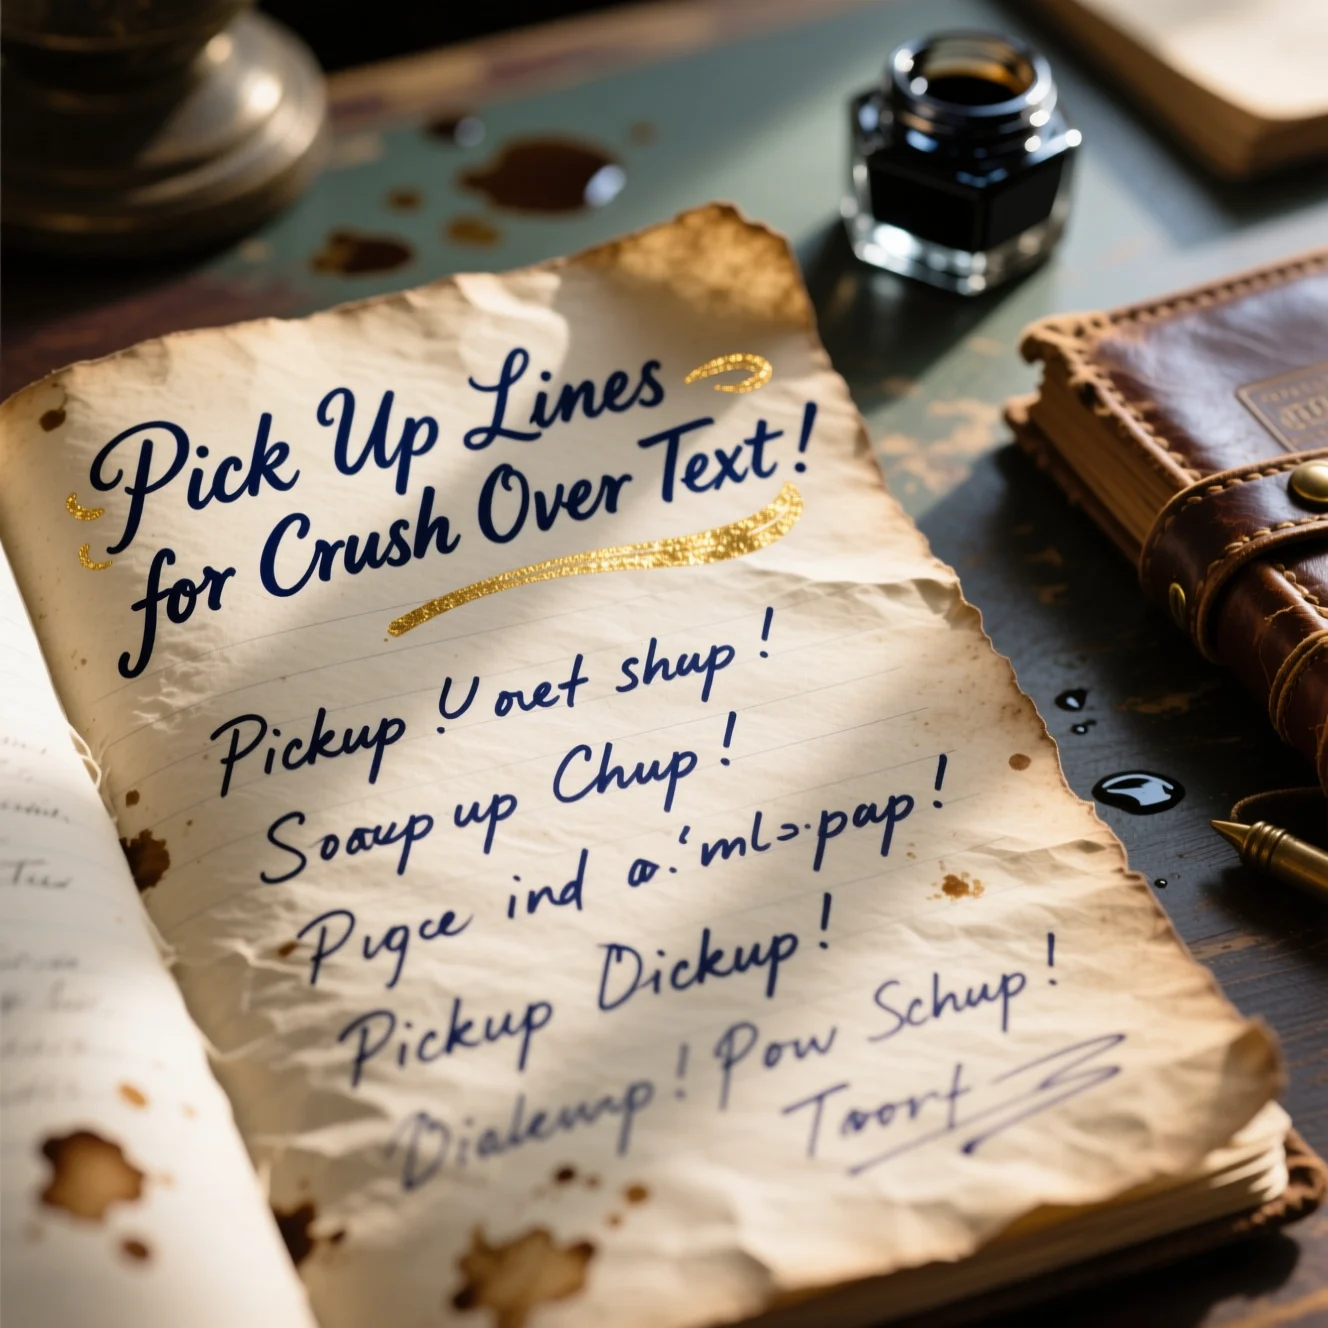 Pick Up Lines
for Crush Over Text!
Pickup! U oret shup!
Soaup up Chup!
Pugce ind
Pickup Dickup!
Dialemp! Pow Schup!
Taort